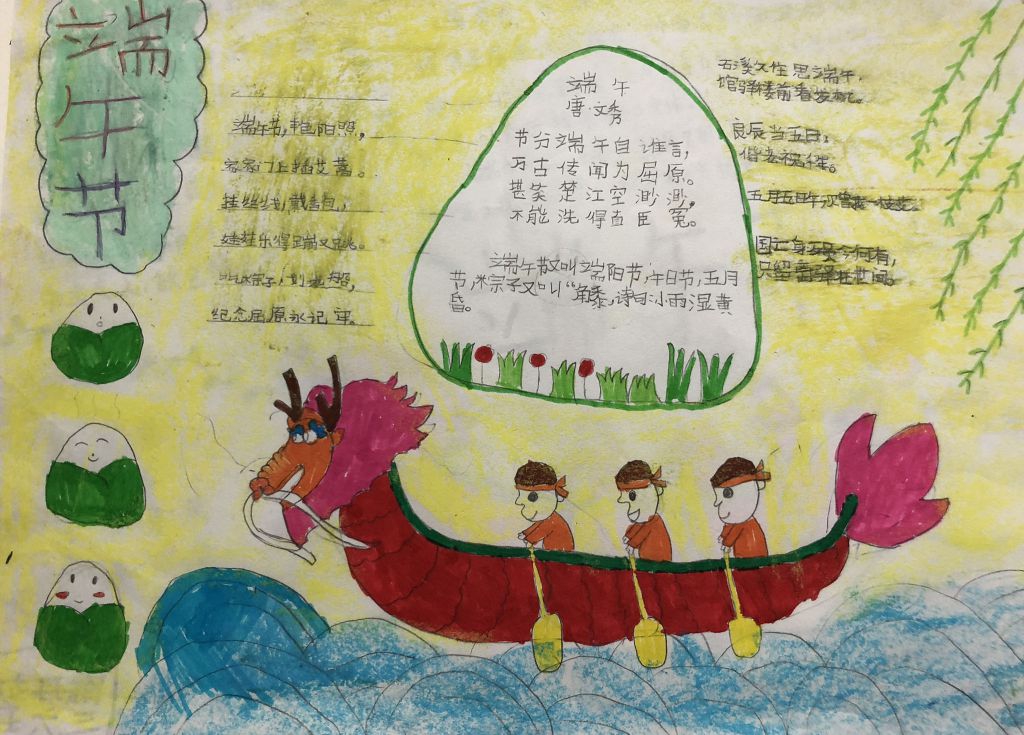 端午节
端午节,艳阳照,
家家门上插艾蒿。
挂丝线,戴香包,
娃娃乐得蹦又跳。
吃粽子,划龙船,
纪念屈原永记牢。
端 午
唐·文秀
节分端午自谁言,
万古传闻为屈原。
堪笑楚江空渺渺,
不能洗得直臣冤。
端午节又叫端阳节,午日节,五月
节,粽子又叫“角黍,诗句:小雨湿黄
昏。
石溪久住思端午,
馆驿楼前看发机。
良辰当五日,
偕老祝千年。
五月五日午,
国亡身殒今何有,
只留离骚在世间。